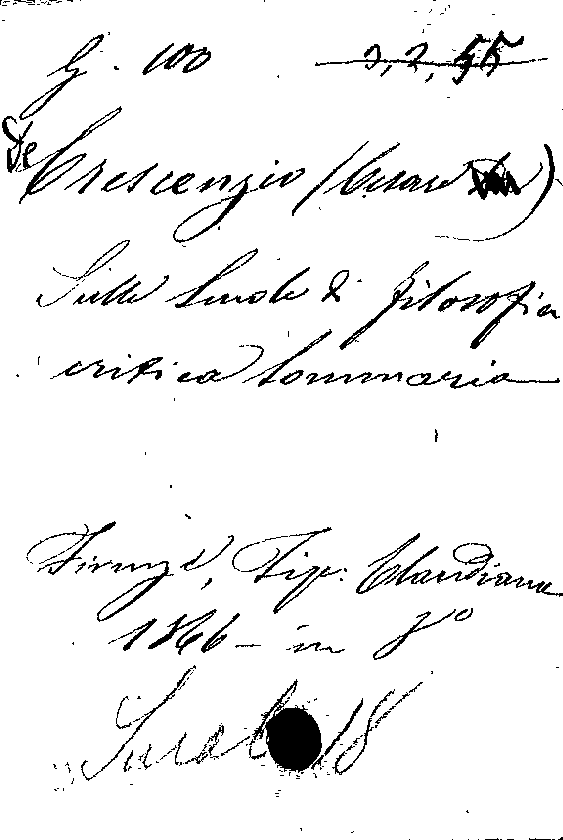 G. 100 3,2,55
De Crescenzio (Cesare)
Sulle Scuole di filosofia
critica sommaria
Firenze, Tip: Claudiana
1866 - in 8º
18